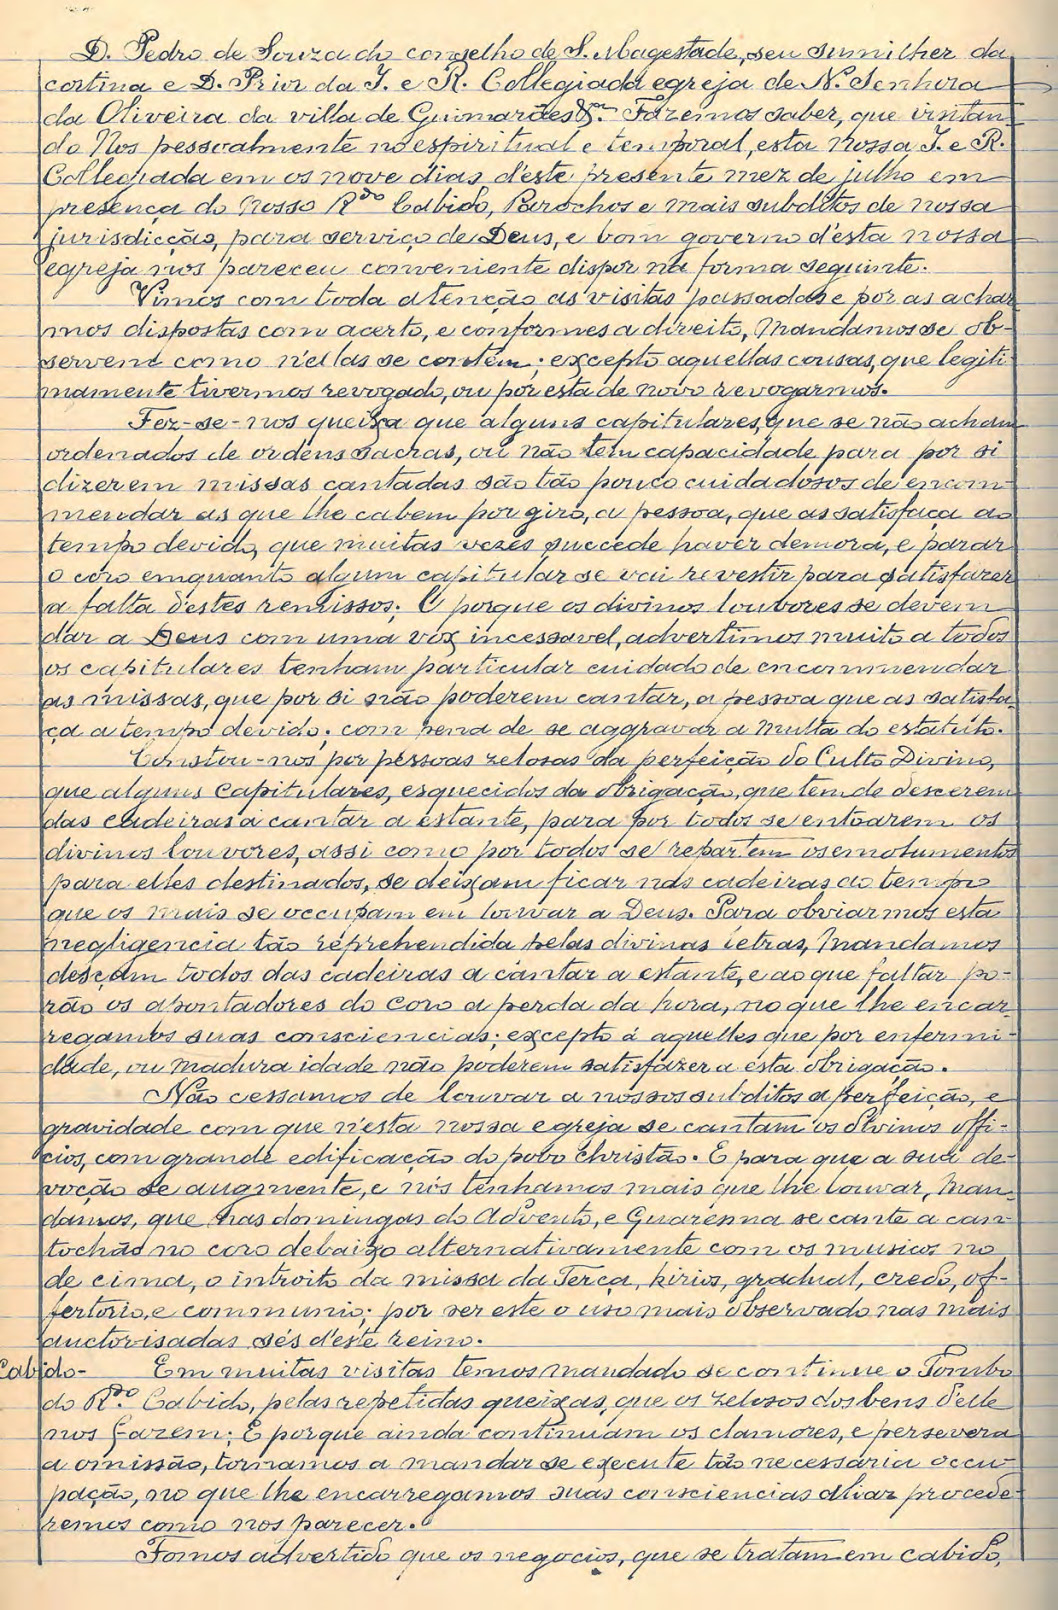 D. Pedro de Souza do conselho de S. Magestade, seu sumilher da
cortina e D. Prior da I. e R. Collegiada egreja de N. Senhora
da Oliveira da villa de Guimarães &ª Fazemos saber, que visitan-
do Nos pessoalmente no espiritual e temporal, esta nossa I. e R.
Collegiada em os nove dias d'este presente mez de julho em
presença do nosso Rdo Cabido, Parochos e mais subditos de nossa
jurisdicção, para serviço de Deus, e bom governo d'esta nossa
egreja nos pareceu conveniente dispor na forma seguinte.
Vimos com toda atenção as visitas passadas e por as achar
mos dispostas com acerto, e conformes a direito, Mandamos se ob-
servem como n'ellas se contém; excepto aquellas cousas, que legiti-
mamente tivermos revogado, ou por esta de novo revogarmos.
Fez-se-nos queixa que alguns capitulares, que se não acham
ordenados de ordens sacras, ou não tem capacidade para por si
dizerem missas cantadas são tão pouco cuidadosos de encom-
mendar as que lhe cabem por giro, a pessoa, que as satisfaça ao
tempo devido, que muitas vezes succede haver demora, e parar
o coro emquanto algum capitular se vai revestir para satisfazer
a falta d'estes remissos. E porque os divinos louvores se devem
dar a Deus com uma voz incessavel, advertimos muito a todos
os capitulares tenham particular cuidado de encommendar
as missas, que por si não poderem cantar, a pessoa que as satisfa-
ça a tempo devido; com pena de se aggravar a multa do estatuto.
Constou-nos por pessoas zelosas da perfeição do Culto Divino,
que alguns Capitulares, esquecidos da obrigação, que tem de descerem
das cadeiras a cantar a estante, para por todos se entoarem os
divinos louvores, assi como por todos se repartem os emolumentos
para elles destinados, se deixam ficar nas cadeiras ao tempo
que os mais se occupam em louvar a Deus. Para obviarmos esta
negligencia tão reprehendida pelas divinas letras, Mandamos
desçam todos das cadeiras a cantar a estante, e ao que faltar po-
rão os apontadores do coro a perda da hora, no que lhe encar
regamos suas consciencias; excepto á aquelles que por enfermi-
dade, ou madura idade não poderem satisfazer a esta obrigação.
Não cessamos de louvar a nossos subditos a perfeição, e
gravidade com que n'esta nossa egreja se cantam os divinos offi-
cios, com grande edificação do povo christão. E para que a sua de-
voção se augmente, e nós tenhamos mais que lhe louvar, Man-
damos, que nas domingas do Advento, e Quaresma se cante a can-
tochão no coro debaixo alternativamente com os musicos no
de cima, o introito da missa da Terça, kirios, gradual, credo, of-
fertorio, e communio; por ser este o uso mais observado nas mais
auctorisadas sés d'este reino.
Cabido- Em muitas visitas temos mandado se continue o Tombo
do Rdo. Cabido, pelas repetidas queixas, que os zelosos dos bens d'elle
nos fazem; E porque ainda continuam os clamores, e persevera
a omissão, tornamos a mandar se execute tão necessaria occu-
pação, no que lhe encarregamos suas consciencias aliaz procede-
remos como nos parecer.
Fomos advertido que os negocios, que se tratam em cabido,